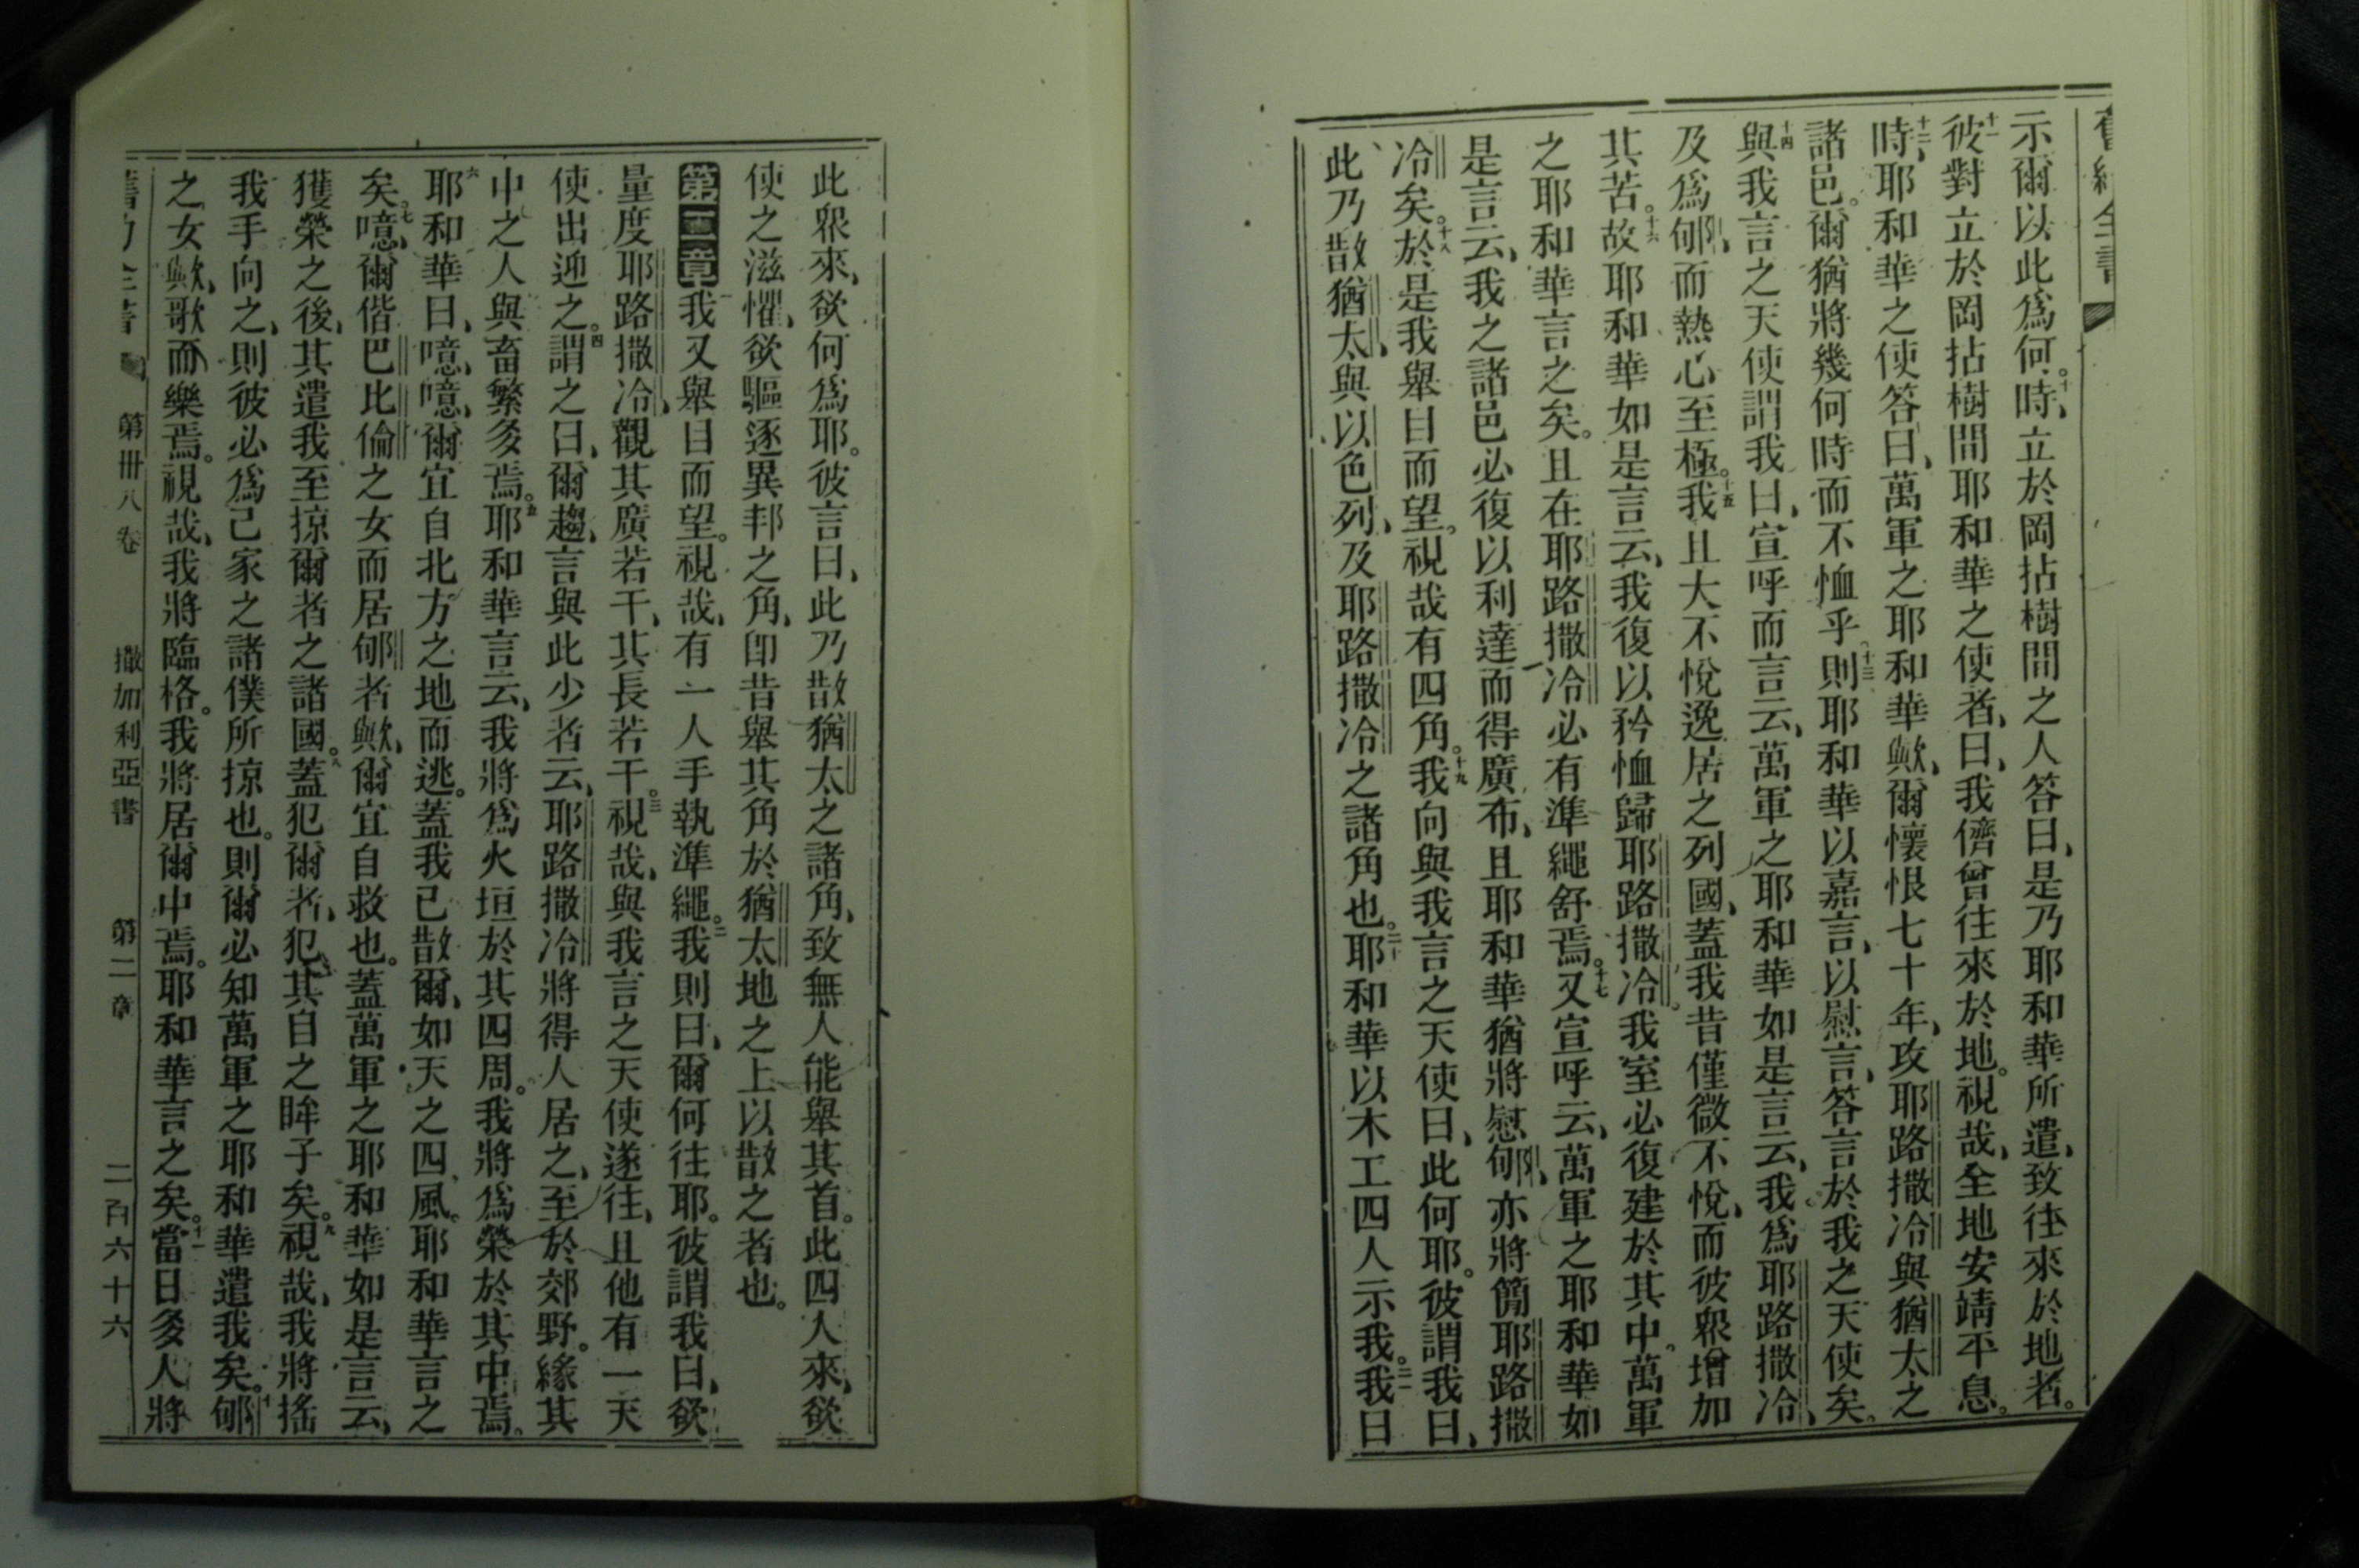 示爾以此爲何。十時、立於岡拈樹間之人答曰、是乃耶和華所遣、致往來於地者。
十一彼對立於岡拈樹間耶和華之使者、曰、我儕曾往來於地。視哉、全地安靖平息。
十二時、耶和華之使答曰、萬軍之耶和華歟、爾懷恨七十年、攻耶路撒冷與猶太之
諸邑。爾猶將幾何時而不恤乎。十三則耶和華以嘉言、以慰言、答言於我之天使矣。
十四與我言之天使謂我曰、宣呼而言云、萬軍之耶和華如是言云、我爲耶路撒冷、
及爲郇、而熱心至極。十五我且大不悅逸居之列國、蓋我昔僅微不悅、而彼眾增加
其苦。十六故耶和華如是言云、我復以矜恤歸耶路撒冷。我室必復建於其中。萬軍
之耶和華言之矣。且在耶路撒冷必有準繩舒焉。十七又宣呼云、萬軍之耶和華如
是言云、我之諸邑必復以利達而得廣布、且耶和華猶將慰郇、亦將簡耶路撒
冷矣。十八於是我舉目而望。視哉有四角。十九我向與我言之天使曰、此何耶。彼謂我曰、
此乃散猶太、與以色列、及耶路撒冷之諸角也。二十耶和華以木工四人示我。二十一我曰
此眾來、欲何爲耶。彼言曰、此乃散猶太之諸角、致無人能舉其首。此四人來、欲
使之滋懼、欲驅逐異邦之角、卽昔舉其角於猶太地之上以散之者也。
第二章一我又舉目而望。視哉、有一人手執準繩。二我則曰、爾何往耶。彼謂我曰、欲
量度耶路撒冷、觀其廣若干、其長若干。三視哉、與我言之天使遂往、且他有一天
使出迎之。四謂之曰、爾趨、言與此少者云、耶路撒冷將得人居之、至於郊野。緣其
中之人與畜繁多焉。五耶和華言云、我將爲火垣於其四周。我將爲榮於其中焉。
六耶和華曰、噫、噫、爾宜自北方之地而逃。蓋我已散爾、如天之四風。耶和華言之
矣。七噫、爾偕巴比倫之女而居郇者歟、爾宜自救也。八蓋萬軍之耶和華如是言云、
獲榮之後、其遣我至掠爾者之諸國。八蓋犯爾者、犯其目之眸子矣。九視哉、我將搖
我手向之、則彼必爲己家之諸僕所掠也。則爾必知萬軍之耶和華遣我矣。十郇
之女歟、歌而樂焉。視哉、我將臨格。我將居爾中焉。耶和華言之矣。十一當日多人將
第卅八卷 撒加利亞書 第二章 二百六十六